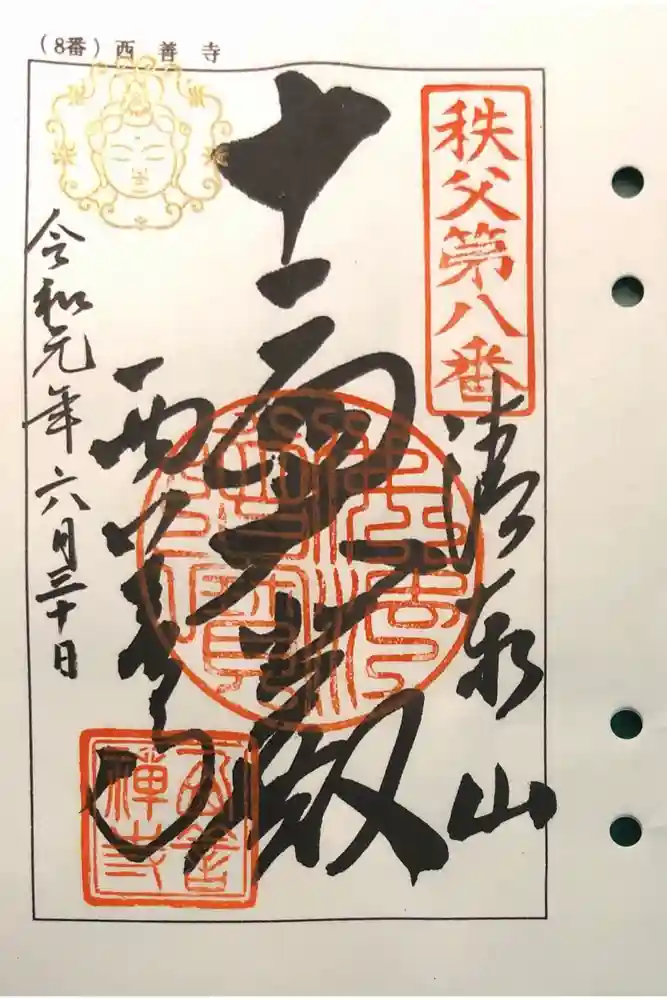 (8番) 西善寺
秩父第八番
清泰山
十一面
殿
佛法僧寶
西善寺
西善禪寺
令和元年六月三十日